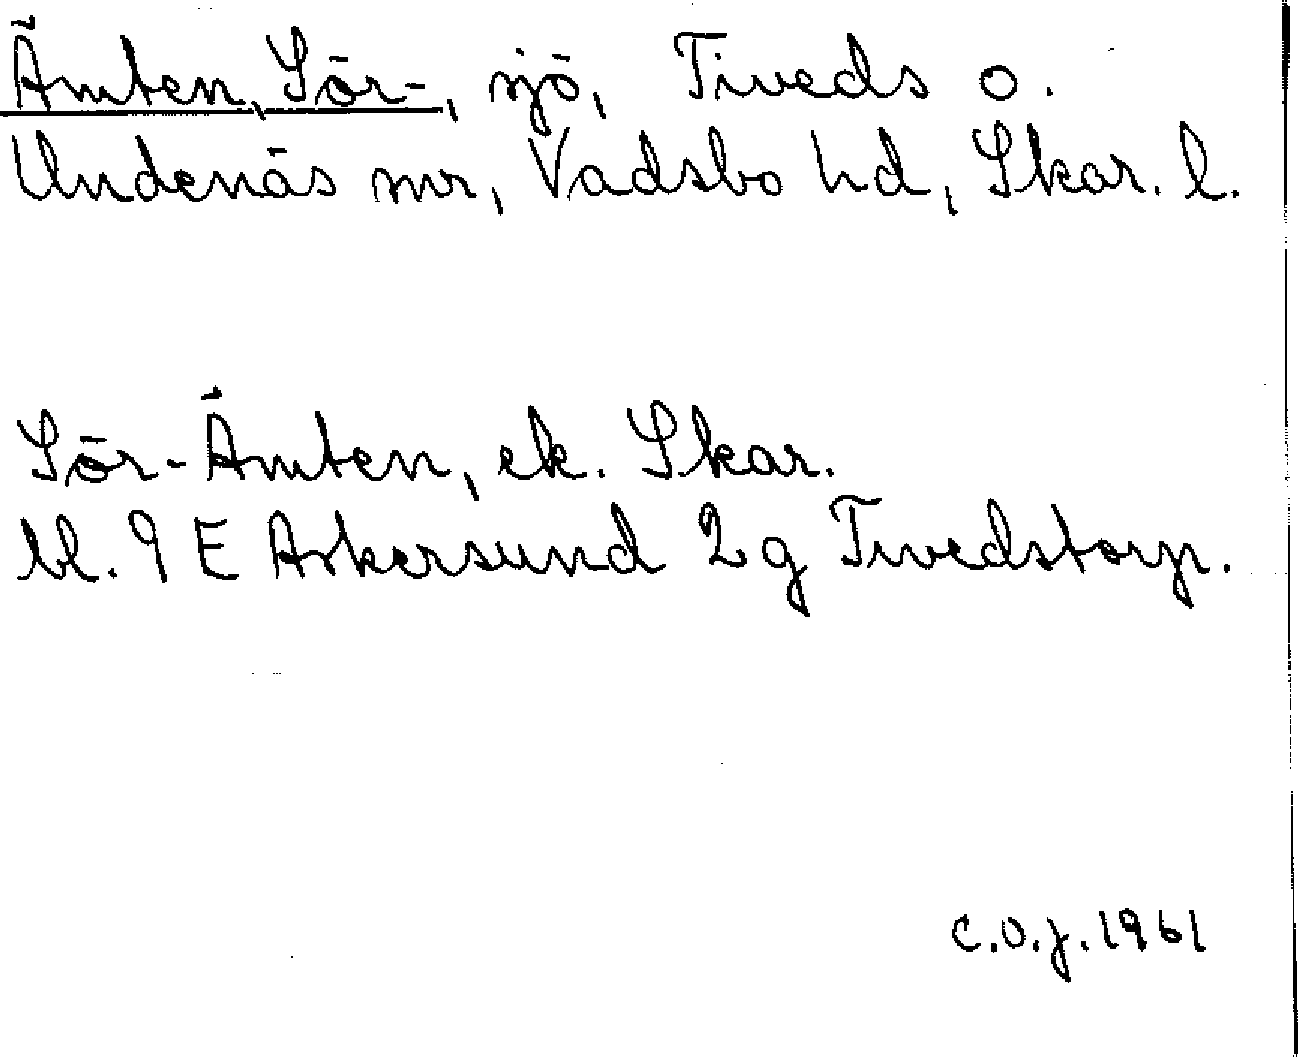 Ämten, Sör-, sjö, Tiveds o.
Undenäs snr, Vadsbo hd, Skar. l.
Sör-Ämten, ek. Skar.
bl. 9 E Askersund 2 g Tivedstorp.
C.O.J. 1961